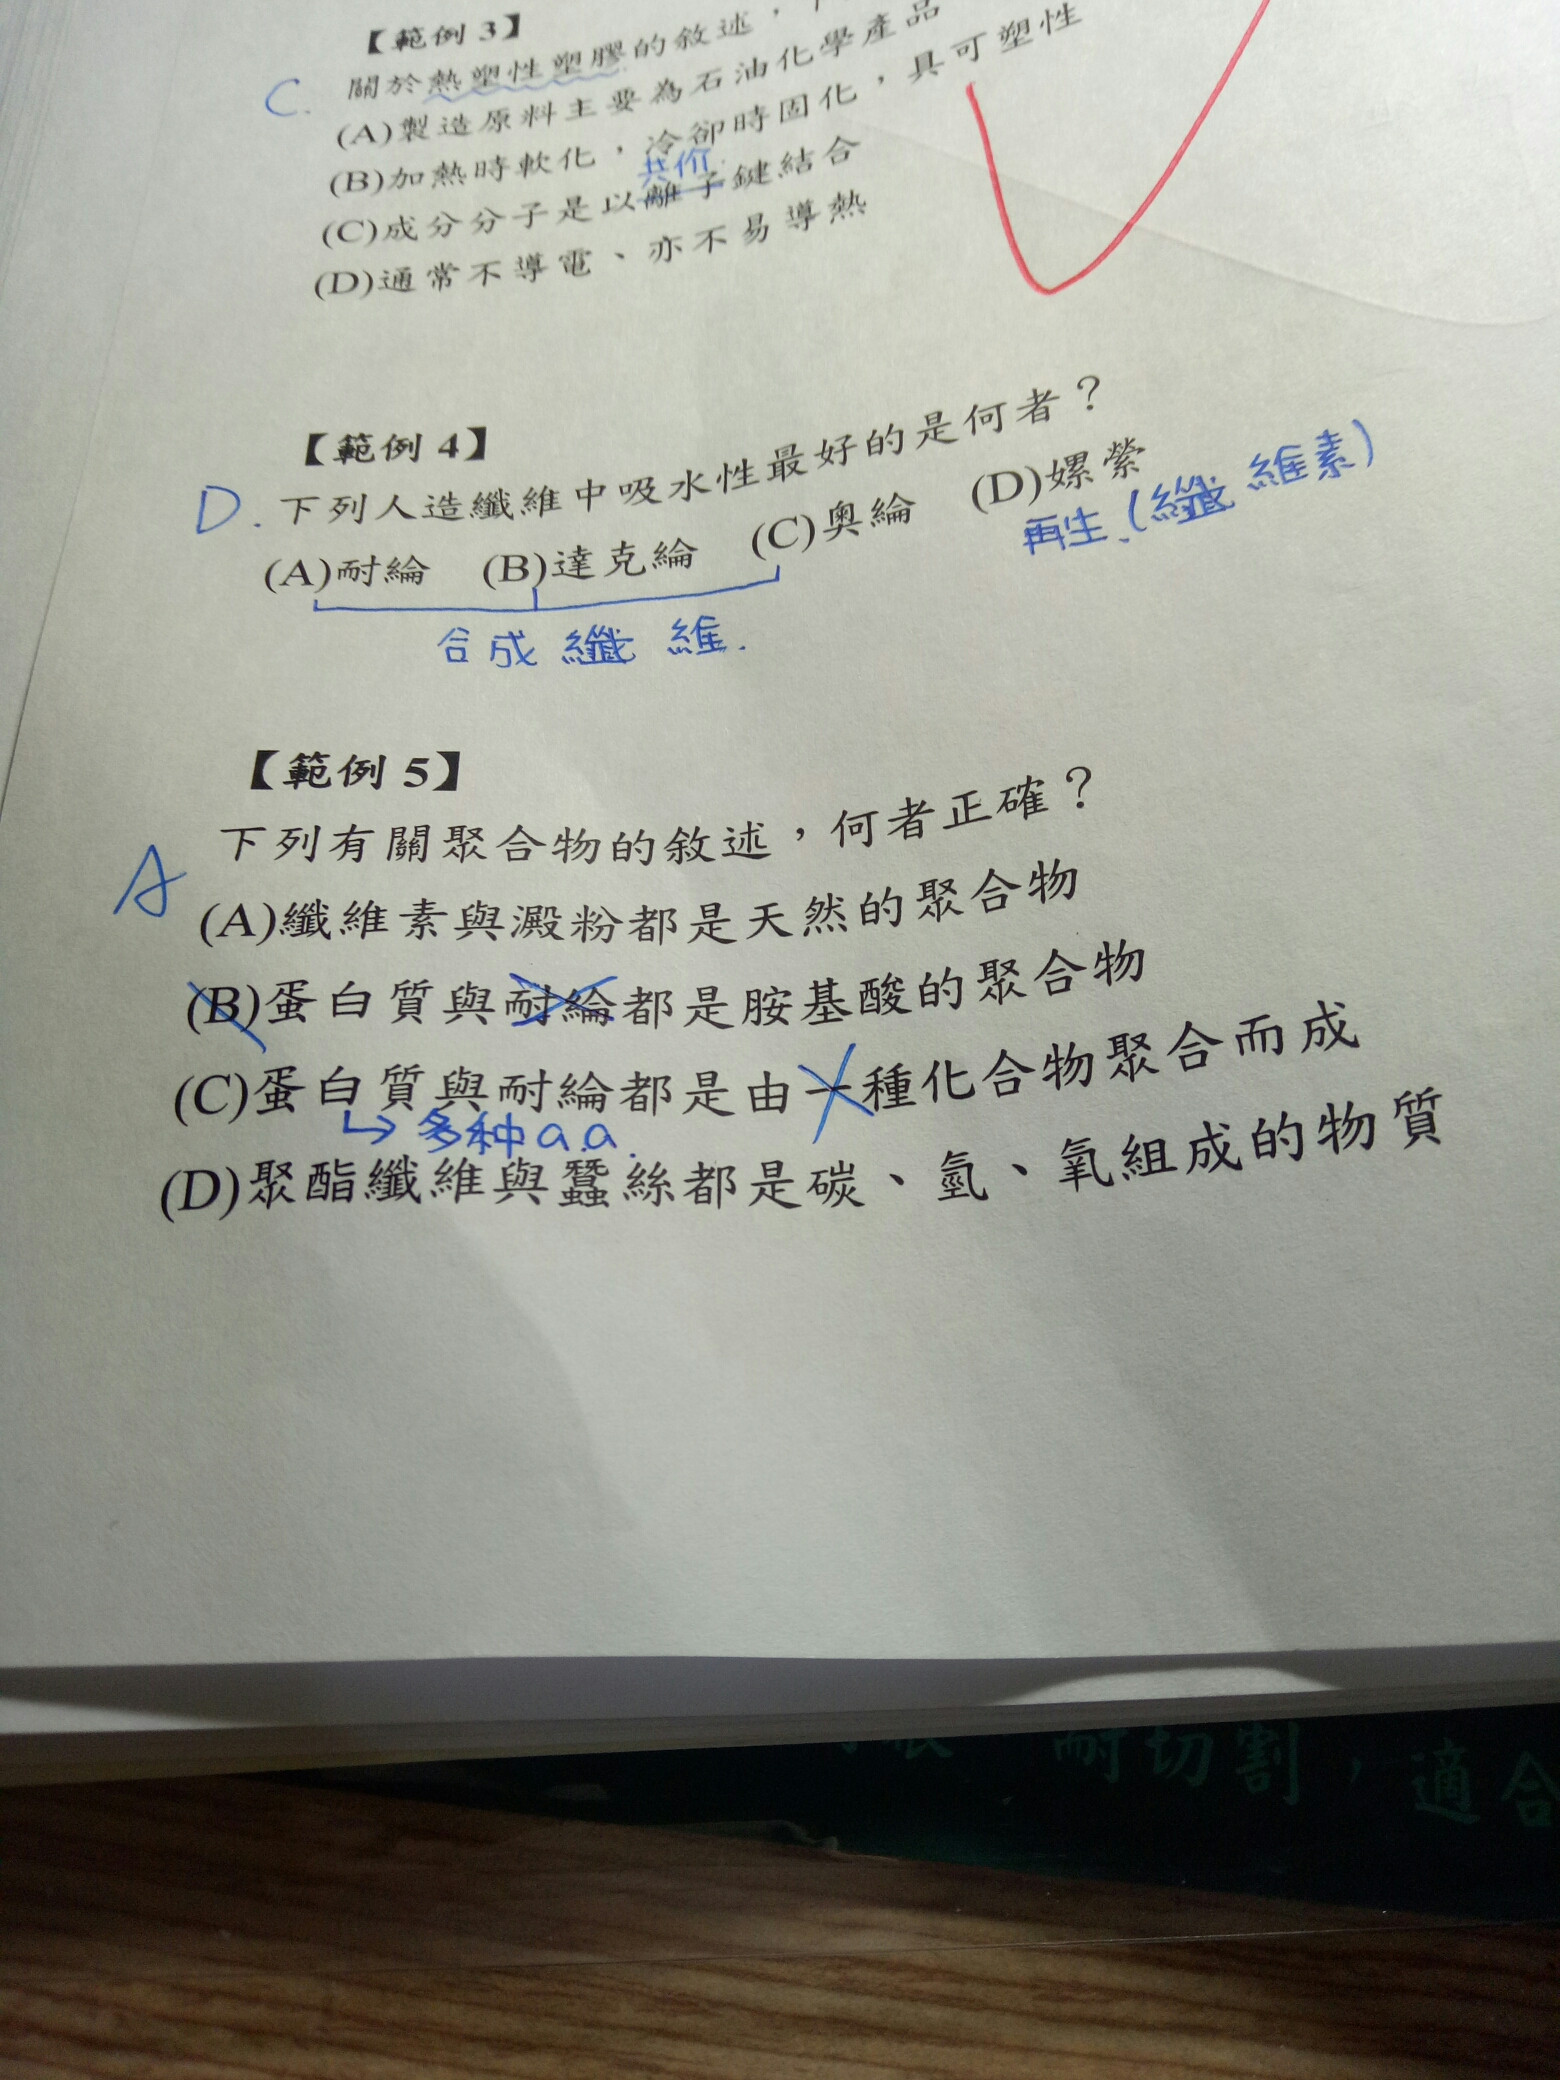 【範例 3】
C. 關於熱塑性塑膠的敘述，
(A)製造原料主要為石油化學產品
(B)加熱時軟化，冷卻時固化，具可塑性
共价
(C)成分分子是以離子鍵結合
(D)通常不導電、亦不易導熱
【範例 4】
D. 下列人造纖維中吸水性最好的是何者？
(A)耐綸 (B)達克綸 (C)奧綸 (D)嫘縈
再生(纖維素)
合成纖維.
【範例 5】
A 下列有關聚合物的敘述，何者正確？
(A)纖維素與澱粉都是天然的聚合物
(B)蛋白質與耐綸都是胺基酸的聚合物
(C)蛋白質與耐綸都是由一種化合物聚合而成
↳多种a.a.
(D)聚酯纖維與蠶絲都是碳、氫、氧組成的物質
耐切割，適合